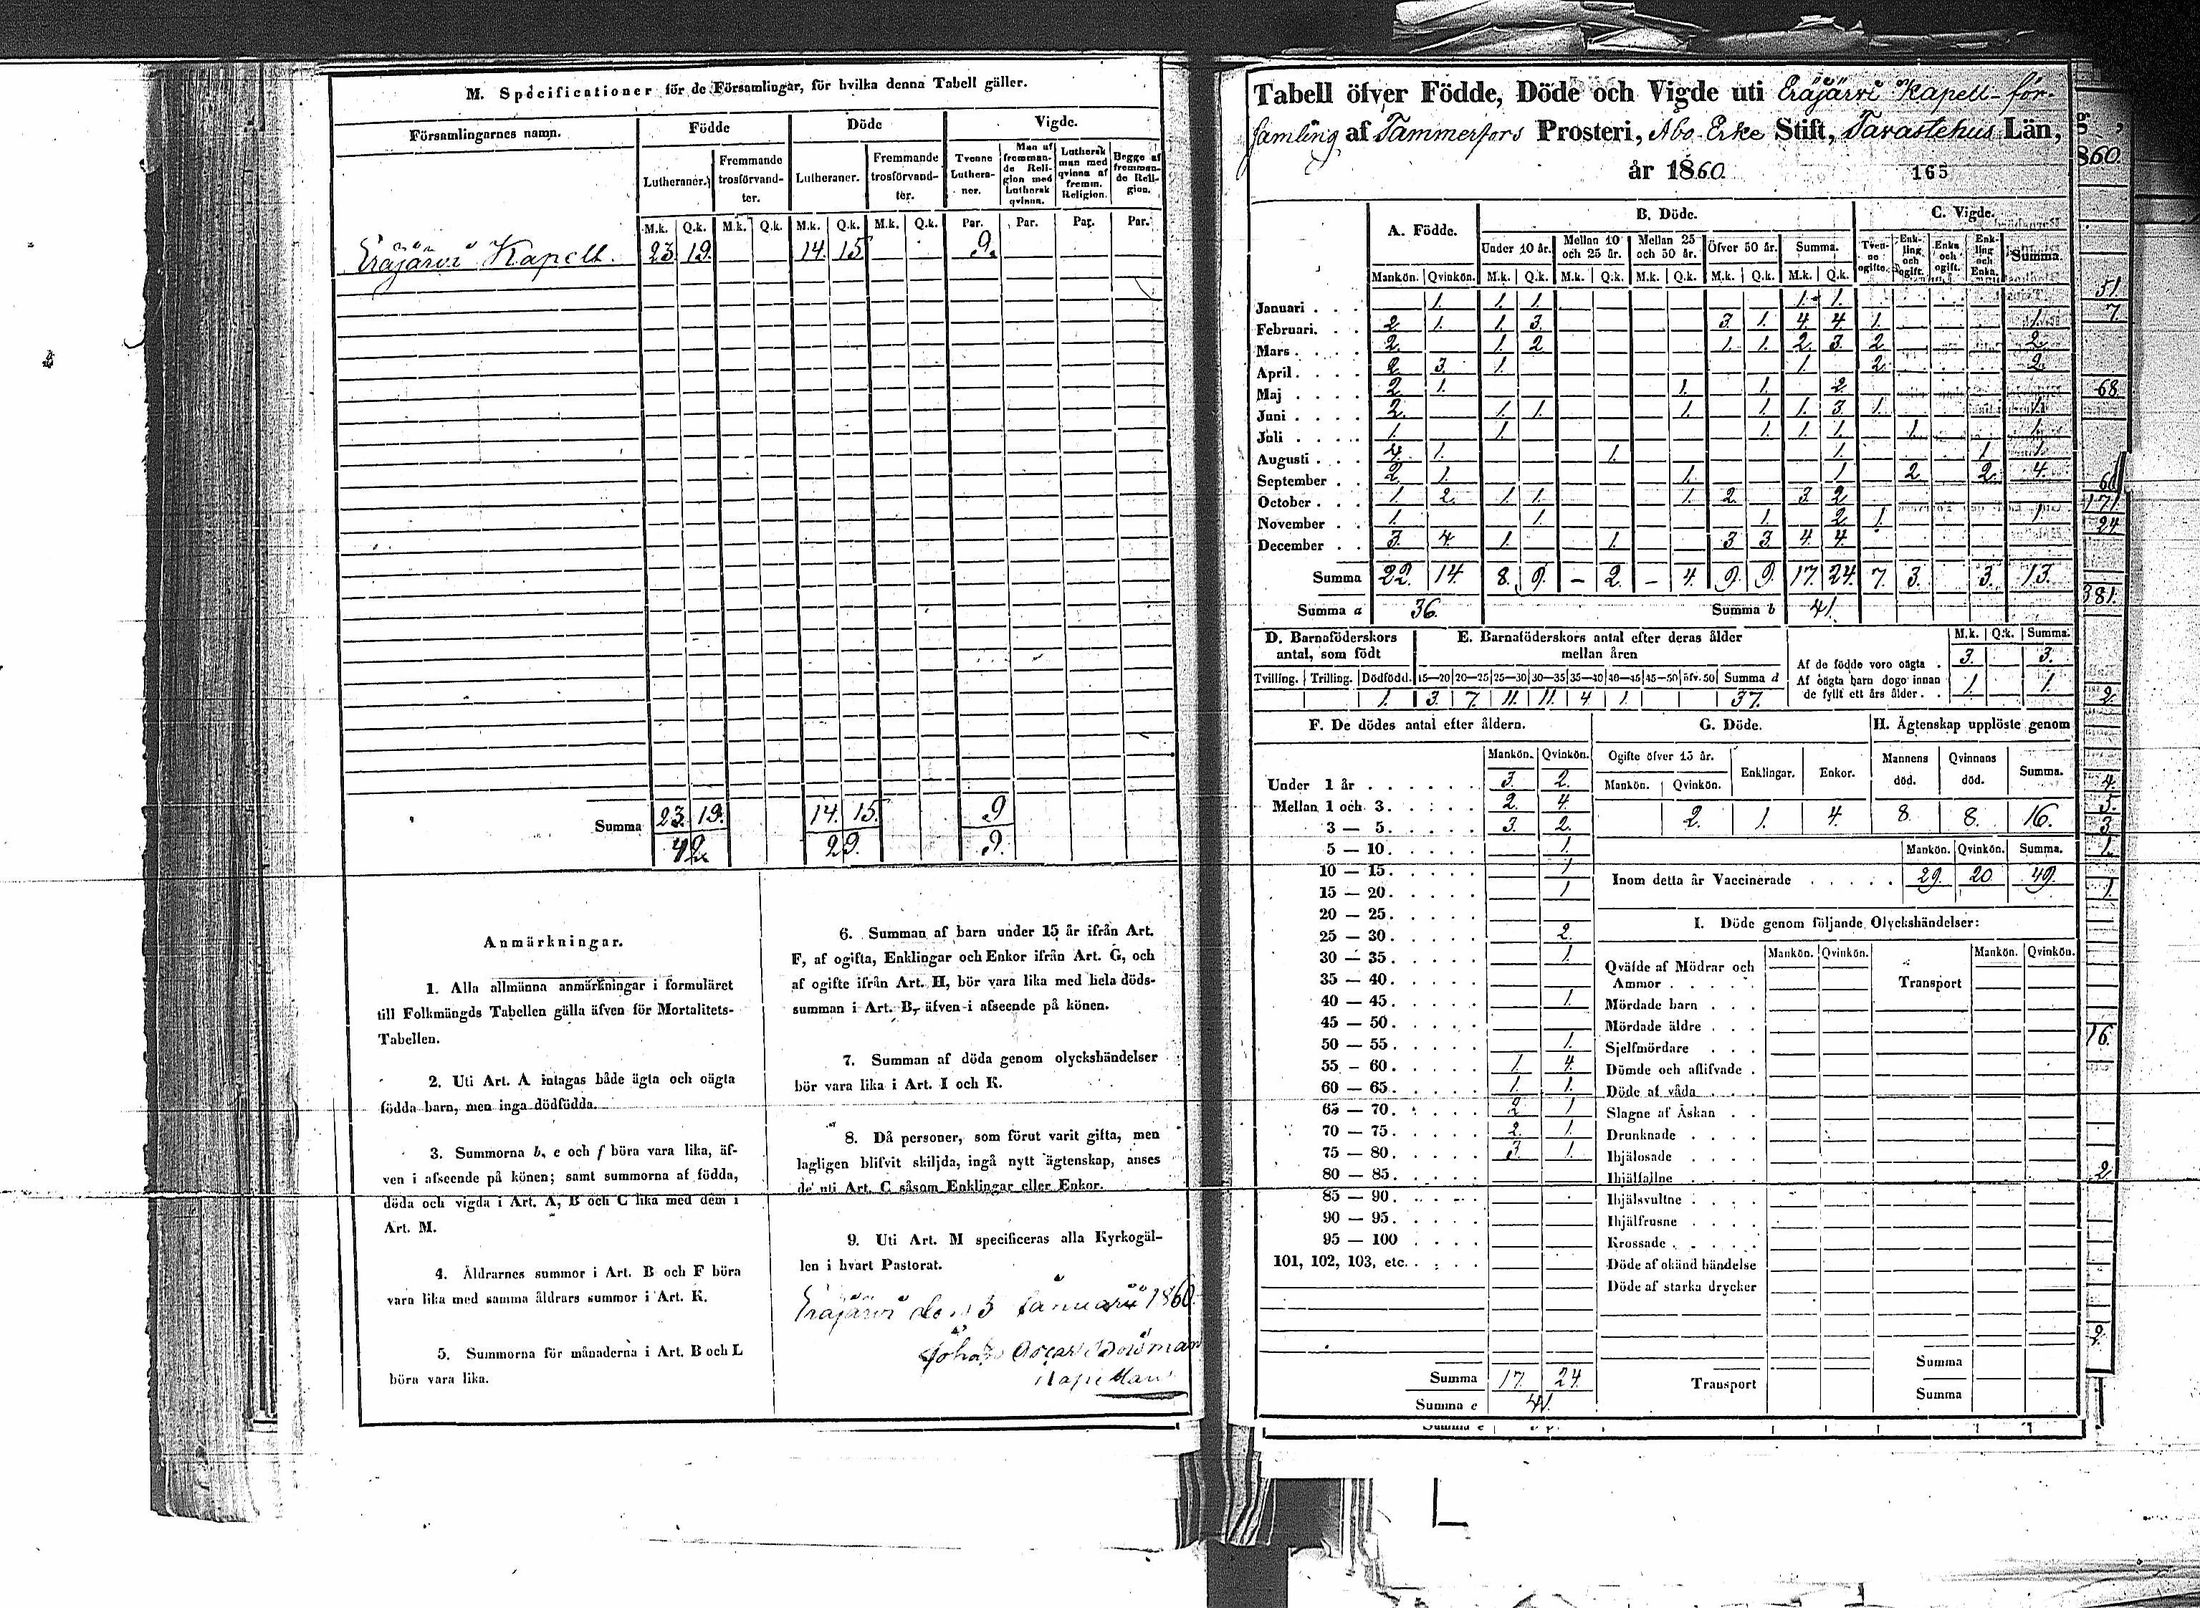 M. Specificationer för de Församlingar, för hvilka denna Tabell gäller.
Församlingarnes namn. Födde Döde Vigde.
Lutheraner. Fremmande trosförvandter. Lutheraner. Fremmande trosförvandter. Tvenne Lutheraner. Man af fremmande Religion med Luthersk qvinna. Luthersk man med qvinna af fremm. Religion. Begge af fremmande Religion.
M.k. Q.k. M.k. Q.k. M.k. Q.k. M.k. Q.k. Par. Par. Par. Par.
Eräjärvi Kapell. 23. 19. 14. 15 9.
Summa 23. 19. 14. 15. 9
42. 29. 9.
Anmärkningar.
1. Alla allmänna anmärkningar i formuläret
till Folkmängds Tabellen gälla äfven för Mortalitets-
Tabellen.
2. Uti Art. A intagas både ägta och oägta
födda barn, men inga dödfödda.
3. Summorna b, e och f böra vara lika, äf-
ven i afseende på könen; samt summorna af födda,
döda och vigda i Art. A, B och C lika med dem i
Art. M.
4. Åldrarnes summor i Art. B och F böra
vara lika med samma åldrars summor i Art. K.
5. Summorna för månaderna i Art. B och L
böra vara lika.
6. Summan af barn under 15 år ifrån Art.
F, af ogifta, Enklingar och Enkor ifrån Art. G, och
af ogifte ifrån Art. H, bör vara lika med hela döds-
summan i Art. B, äfven i afseende på könen.
7. Summan af döda genom olyckshändelser
bör vara lika i Art. I och K.
8. Då personer, som förut varit gifta, men
lagligen blifvit skiljda, ingå nytt ägtenskap, anses
de uti Art. C såsom Enklingar eller Enkor.
9. Uti Art. M specificeras alla Kyrkogäl-
len i hvart Pastorat.
Eräjärvi den 3 Januarii 1860.
Johan Oscar
Kapellan
Tabell öfver Födde, Döde och Vigde uti Eräjärvi Kapell-för-
samling af Tammerfors Prosteri, Abo Erke Stift, Tavastehus Län,
år 1860. 165
A. Födde. B. Döde. C. Vigde.
Under 10 år. Mellan 10 och 25 år. Mellan 25 och 50 år. Öfver 50 år. Summa. Tvenne ogifte. Enkling och ogift. Enka och ogift. Enkling och Enka. Summa.
Mankön. Qvinkön. M.k. Q.k. M.k. Q.k. M.k. Q.k. M.k. Q.k. M.k. Q.k.
Januari 1. 1. 1. 1. 1.
Februari. 2. 1. 1. 3. 3. 1. 4. 4. 1. 1.
Mars 2. 1. 2. 1. 1. 2. 3. 2. 2.
April 2. 3. 1. 1. 2. 2.
Maj 2. 1. 1. 1. 2.
Juni 2. 1. 1. 1. 1. 1. 3. 1. 1.
Juli 1. 1. 1. 1. 1. 1. 1.
Augusti 4. 1. 1. 1. 1. 1.
September 2. 1. 1. 1 2. 2. 4.
October 1. 2. 1. 1. 1. 2. 3. 2.
November 1. 1. 1. 2. 1. 1.
December 3. 4. 1. 1. 3. 3. 4. 4.
Summa 22. 14. 8. 9. - 2. - 4. 9. 9. 17. 24. 7. 3. 3. 13.
Summa a 36. Summa b 41.
D. Barnaföderskors antal, som födt
Tvilling. Trilling. Dödfödd.
1.
E. Barnaföderskors antal efter deras ålder mellan åren
15—20 20—25 25—30 30—35 35—40 40—45 45—50 öfv. 50 Summa d
3. 7. 11. 11. 4 1. 37.
M.k. Q.k. Summa.
Af de födde voro oägta 3. 3.
Af oägta barn dogo innan
de fyllt ett års ålder 1. 1.
F. De dödes antal efter åldern.
Mankön. Qvinkön.
Under 1 år 3. 2.
Mellan 1 och 3. 2. 4
3 — 5. 3. 2.
5 — 10. 1.
10 — 15. 1
15 — 20. 1
20 — 25.
25 — 30. 2.
30 — 35. 1.
35 — 40.
40 — 45. 1.
45 — 50.
50 — 55. 1.
55 — 60. 1. 4.
60 — 65. 1. 1.
65 — 70. 2 1.
70 — 75. 2. 1.
75 — 80. 3. 1.
80 — 85.
85 — 90.
90 — 95.
95 — 100
101, 102, 103, etc.
Summa 17. 24.
Summa e 41.
G. Döde.
Ogifte öfver 15 år. Enklingar. Enkor.
Mankön. Qvinkön.
2. 1. 4.
H. Ägtenskap upplöste genom
Mannens död. Qvinnans död. Summa.
8. 8. 16.
Mankön. Qvinkön. Summa.
Inom detta år Vaccinerade 29. 20 49.
I. Döde genom följande Olyckshändelser:
Mankön. Qvinkön. Mankön. Qvinkön.
Qväfde af Mödrar och
Ammor Transport
Mördade barn
Mördade äldre
Sjelfmördare
Dömde och aflifvade
Döde af våda
Slagne af Åskan
Drunknade
Ihjälosade
Ihjälfallne
Ihjälsvultne
Ihjälfrusne
Krossade
Döde af okänd händelse
Döde af starka drycker
Summa
Transport Summa